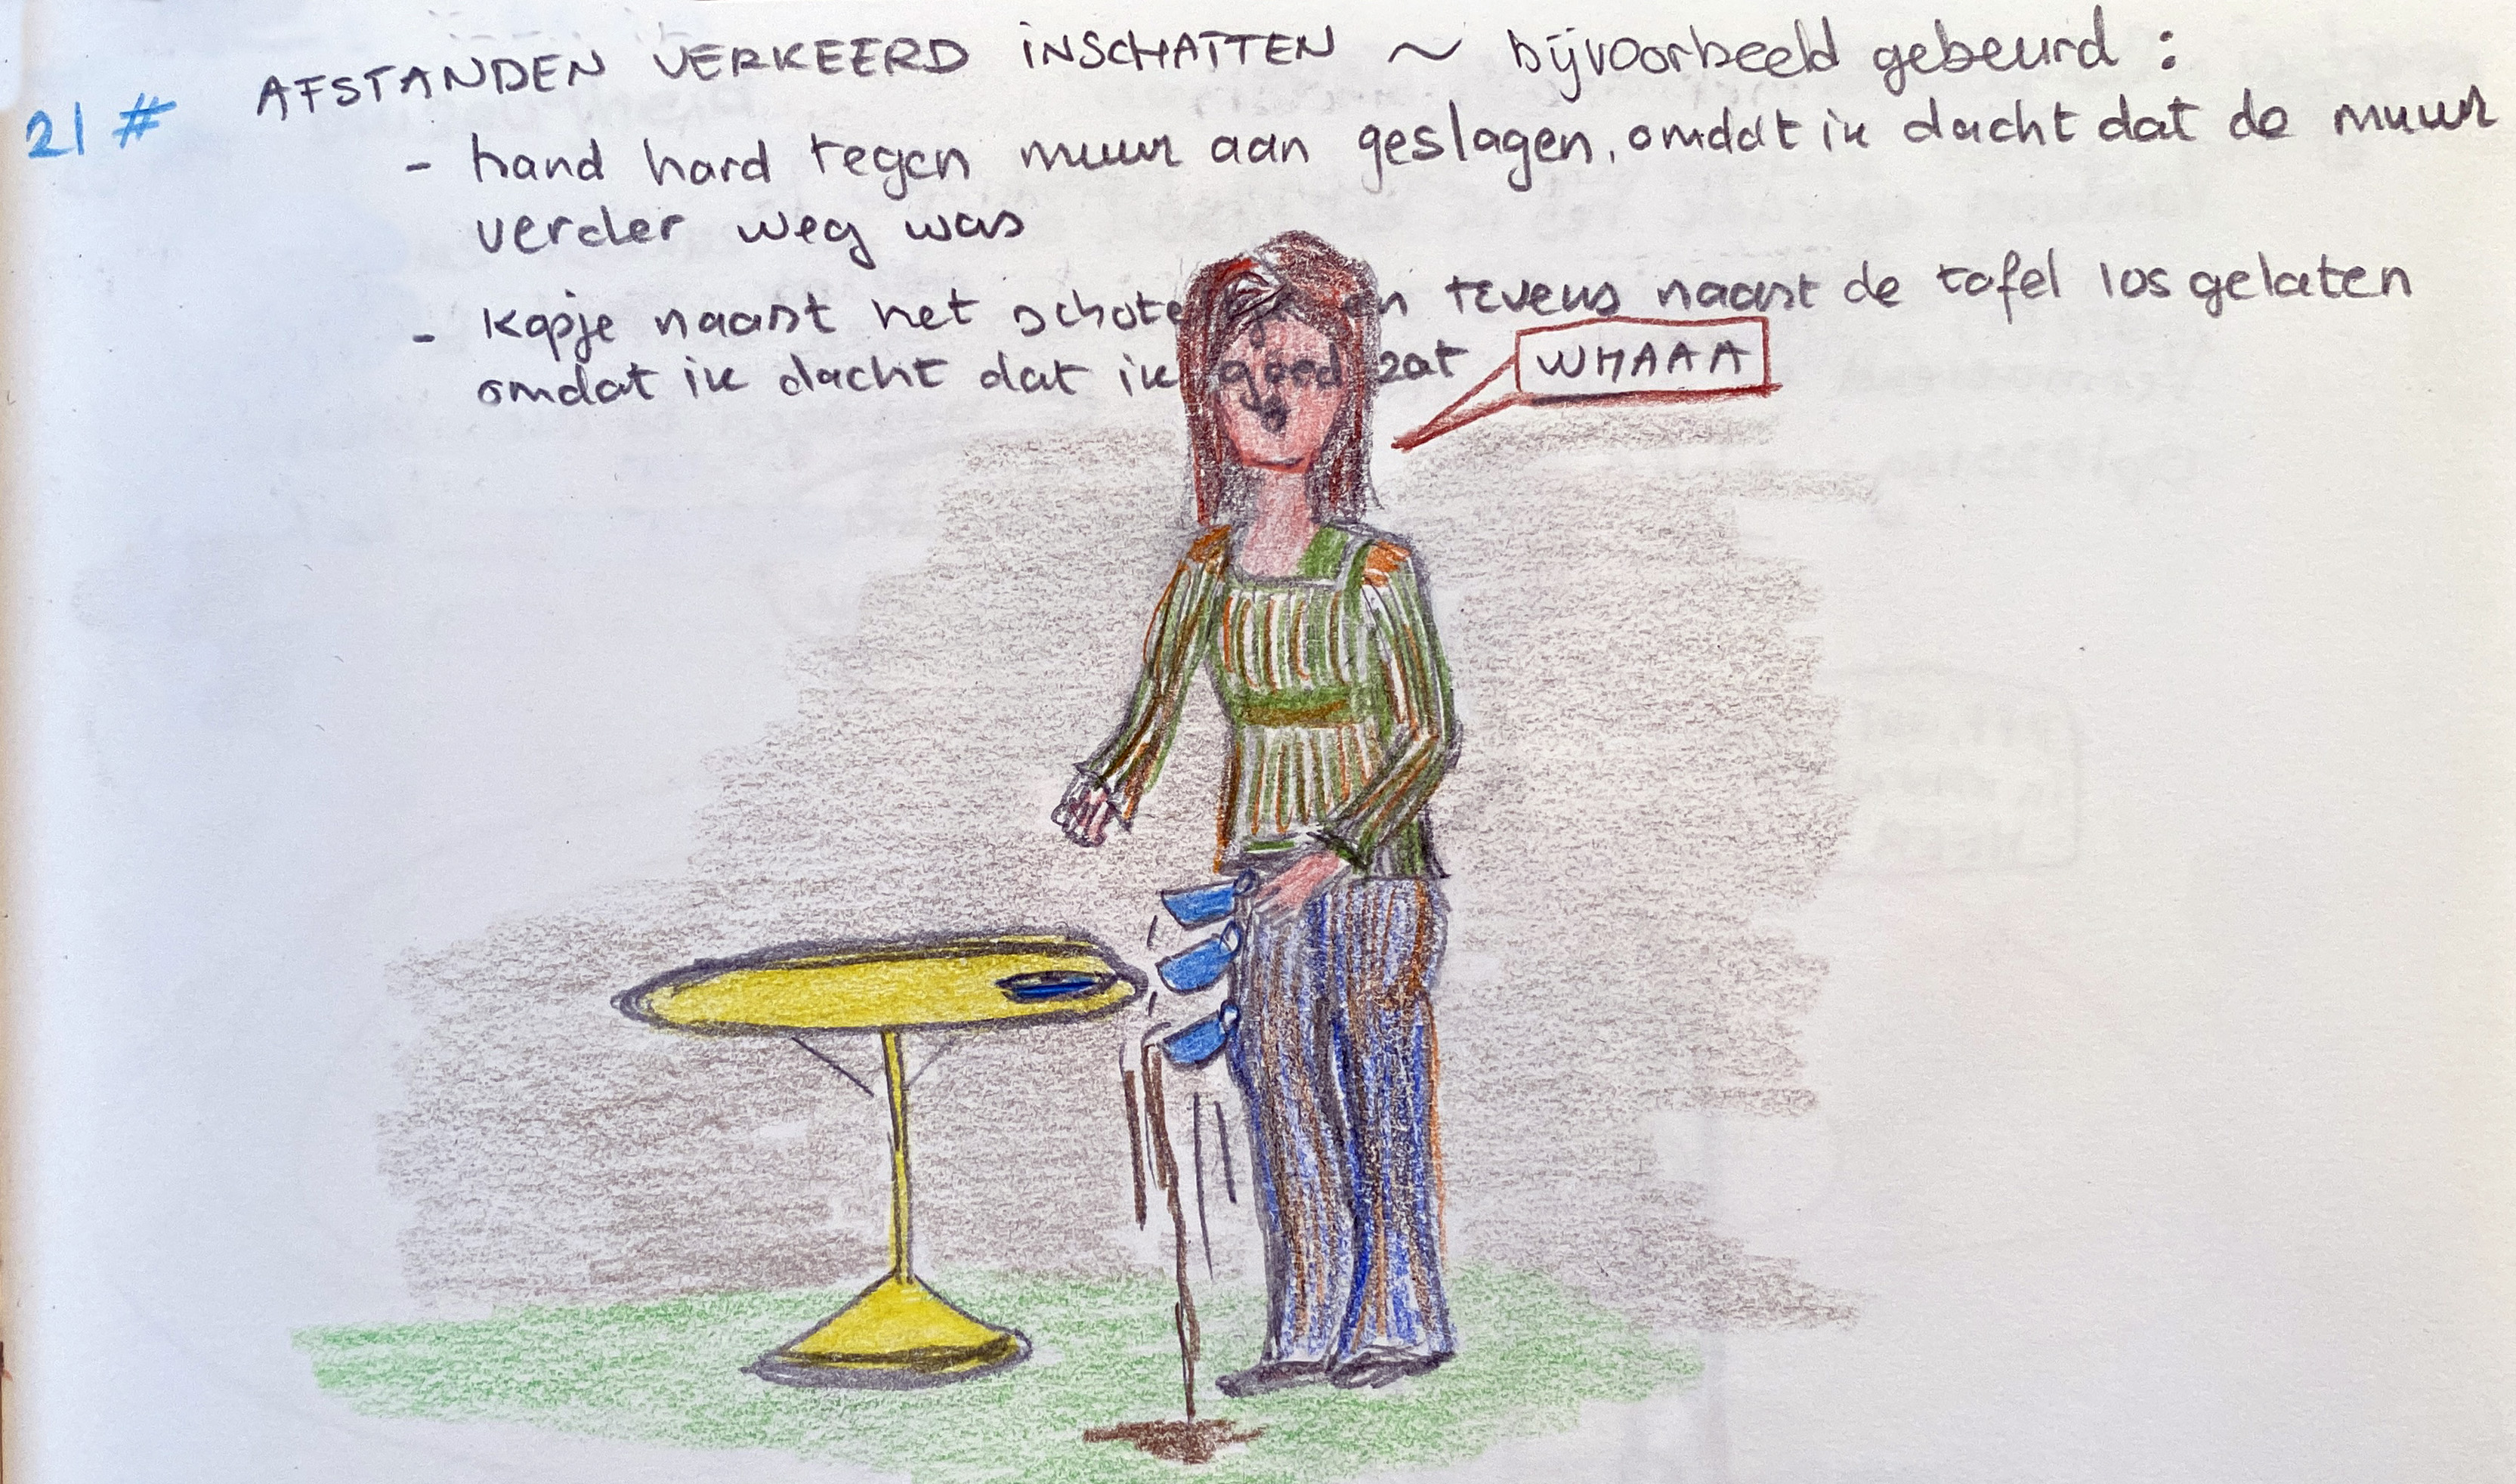 21 # AFSTANDEN VERKEERD INSCHATTEN ~ bijvoorbeeld gebeurd :
- hand hard tegen muur aan geslagen, omdat ik dacht dat de muur
verder weg was
- kopje naast het schoteltje en tevens naast de tafel los gelaten
omdat ik dacht dat ik goed zat
WHAAA